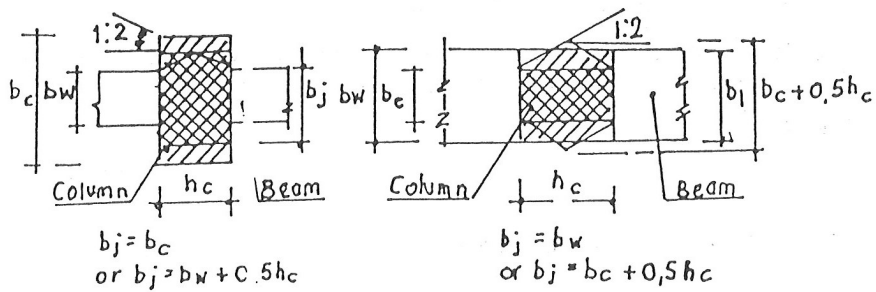 1:2
bc
bw
bj
Column
hc
Beam
bj = bc
or bj = bw + 0.5hc
1:2
bw
bc
b1
bc + 0,5hc
Column
hc
Beam
bj = bw
or bj = bc + 0,5hc